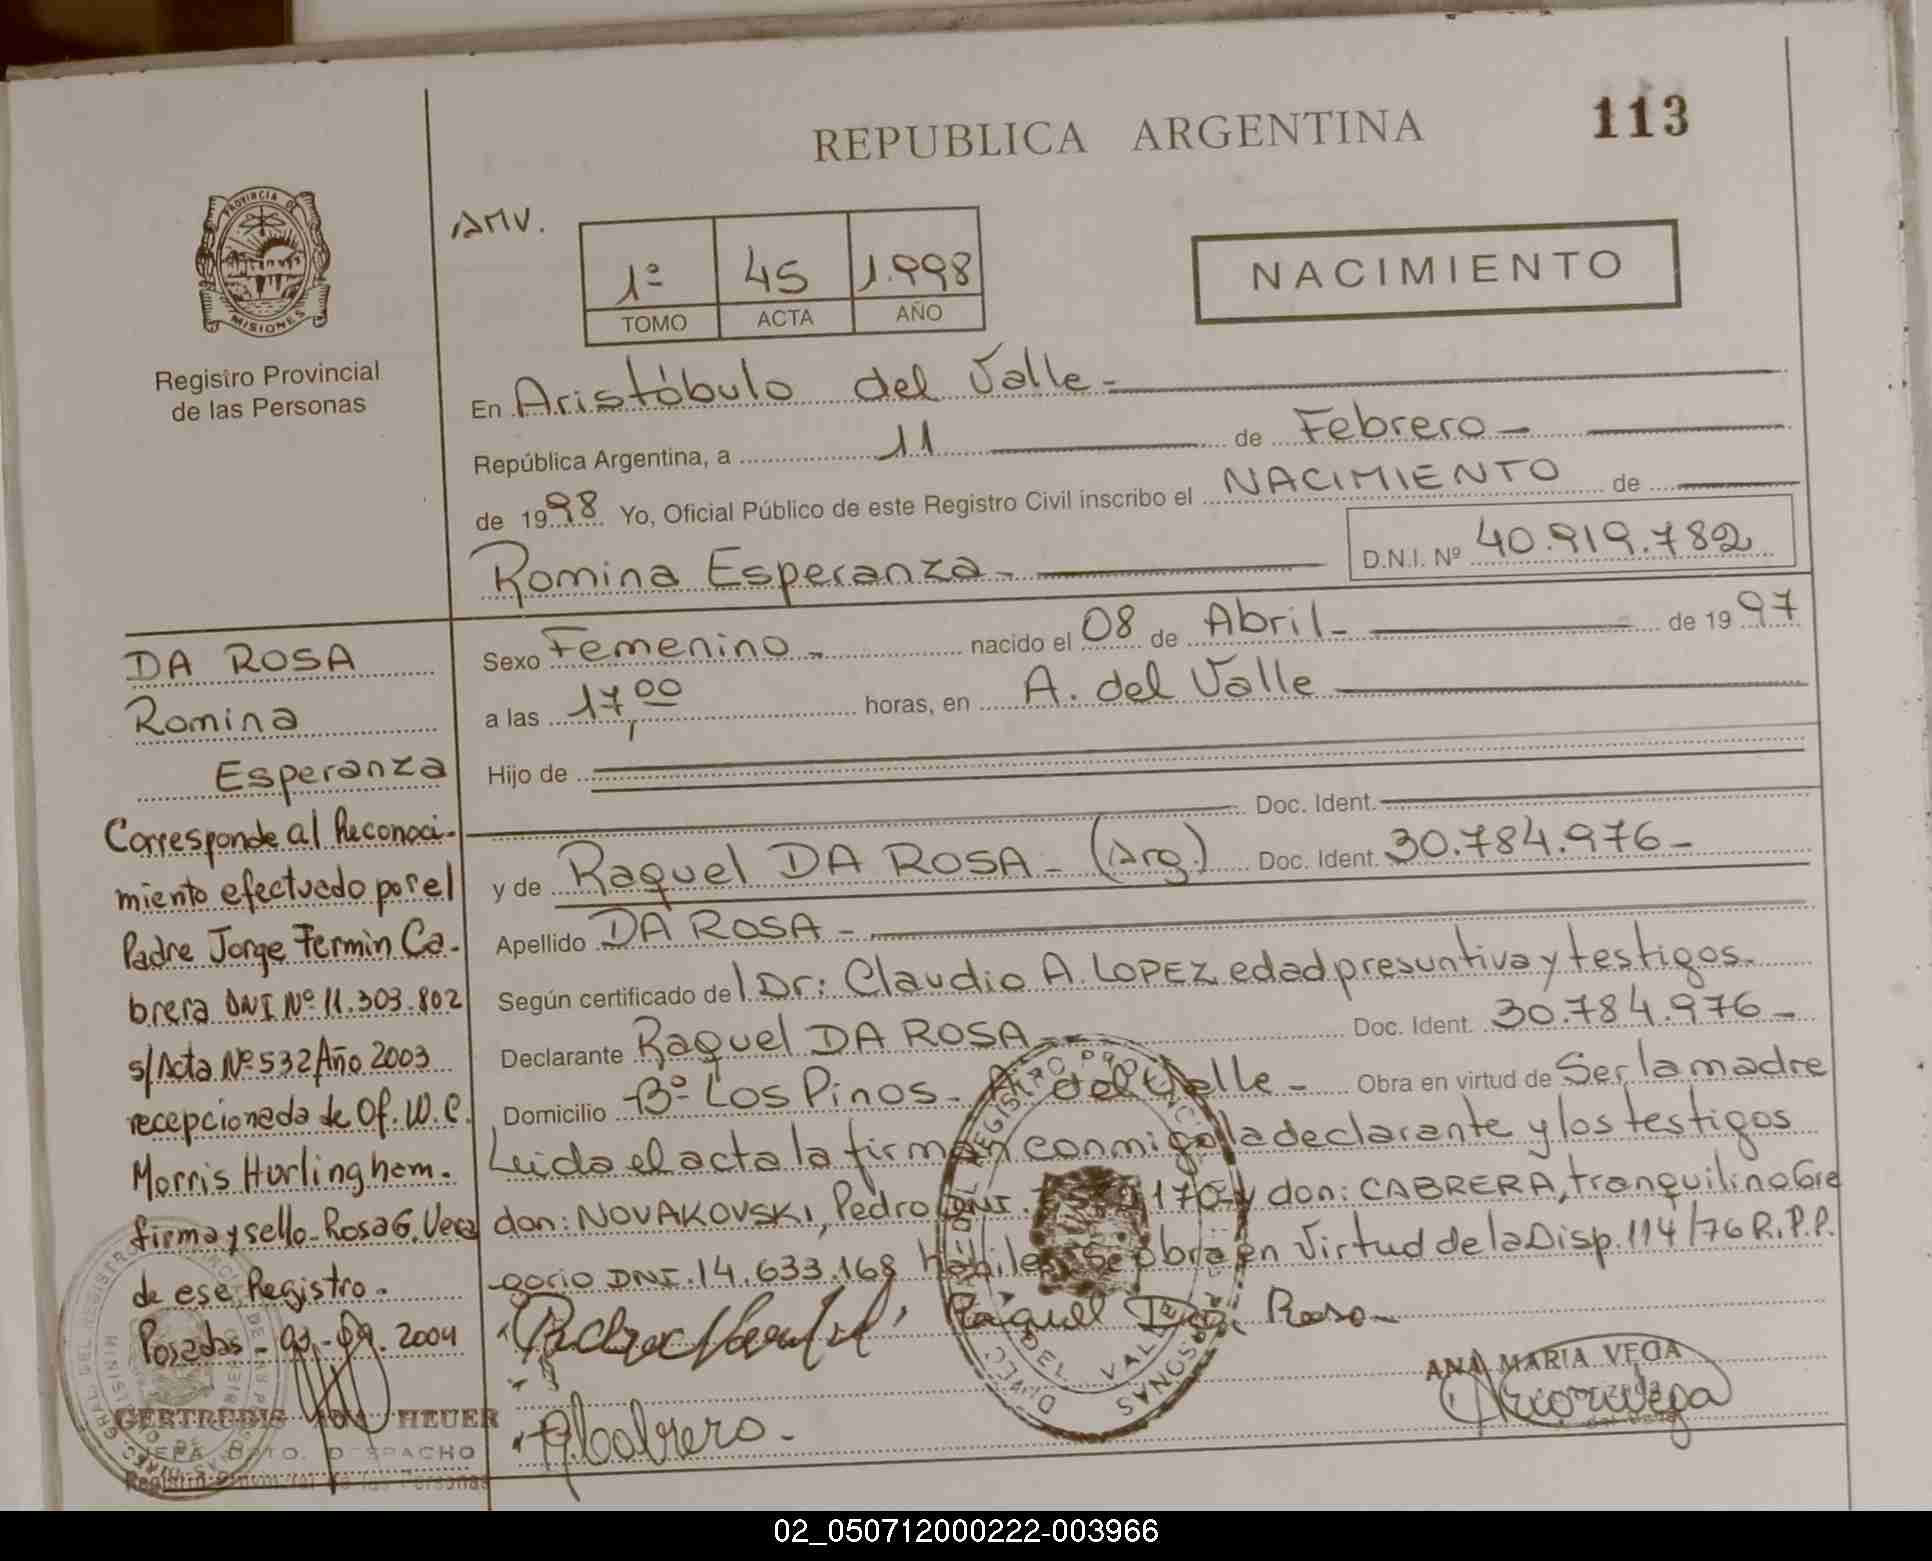 113
REPUBLICA ARGENTINA
PROVINCIA D
MISIONES
Registro Provincial
de las Personas
AMV.
1º 45 1.998
TOMO ACTA AÑO
NACIMIENTO
En Aristóbulo del Valle-
República Argentina, a 11 de Febrero-
de 1998 Yo, Oficial Público de este Registro Civil inscribo el NACIMIENTO de
Romina Esperanza- D.N.I. Nº 40.919.782
Sexo Femenino- nacido el 08 de Abril- de 1997
a las 17,00 horas, en A. del Valle
Hijo de
Doc. Ident.
y de Raquel DA ROSA- (Arg.) Doc. Ident. 30.784.976-
Apellido DA ROSA-
Según certificado del Dr: Claudio A. LOPEZ edad presuntiva y testigos.
Declarante Raquel DA ROSA- Doc. Ident. 30.784.976-
Domicilio Bº Los Pinos- A. del Valle- Obra en virtud de Ser la madre
Leida el acta la firman conmigo la declarante y los testigos
don: NOVAKOVSKI, Pedro DNI. 170 y don: CABRERA, tranquilino Gre
gorio DNI. 14.633.168 hábiles Se obra en Virtud de la Disp. 114/76 R.P.P.
Raquel Da Rosa
ANA MARIA VEGA
A Cabrero.
DA ROSA
Romina
Esperanza
Corresponde al Reconoci-
miento efectuado por el
Padre Jorge Fermin Ca-
brera DNI Nº 11.303.802
s/Acta Nº 532 Año 2003
recepcionada de Of. W.C.
Morris Hurlingham.
firma y sello- Rosa G. Vera
de ese Registro.
Posadas- 03.-09. 2004
GERTRUDIS HEUER
JEFA DPTO. DESPACHO
02_050712000222-003966